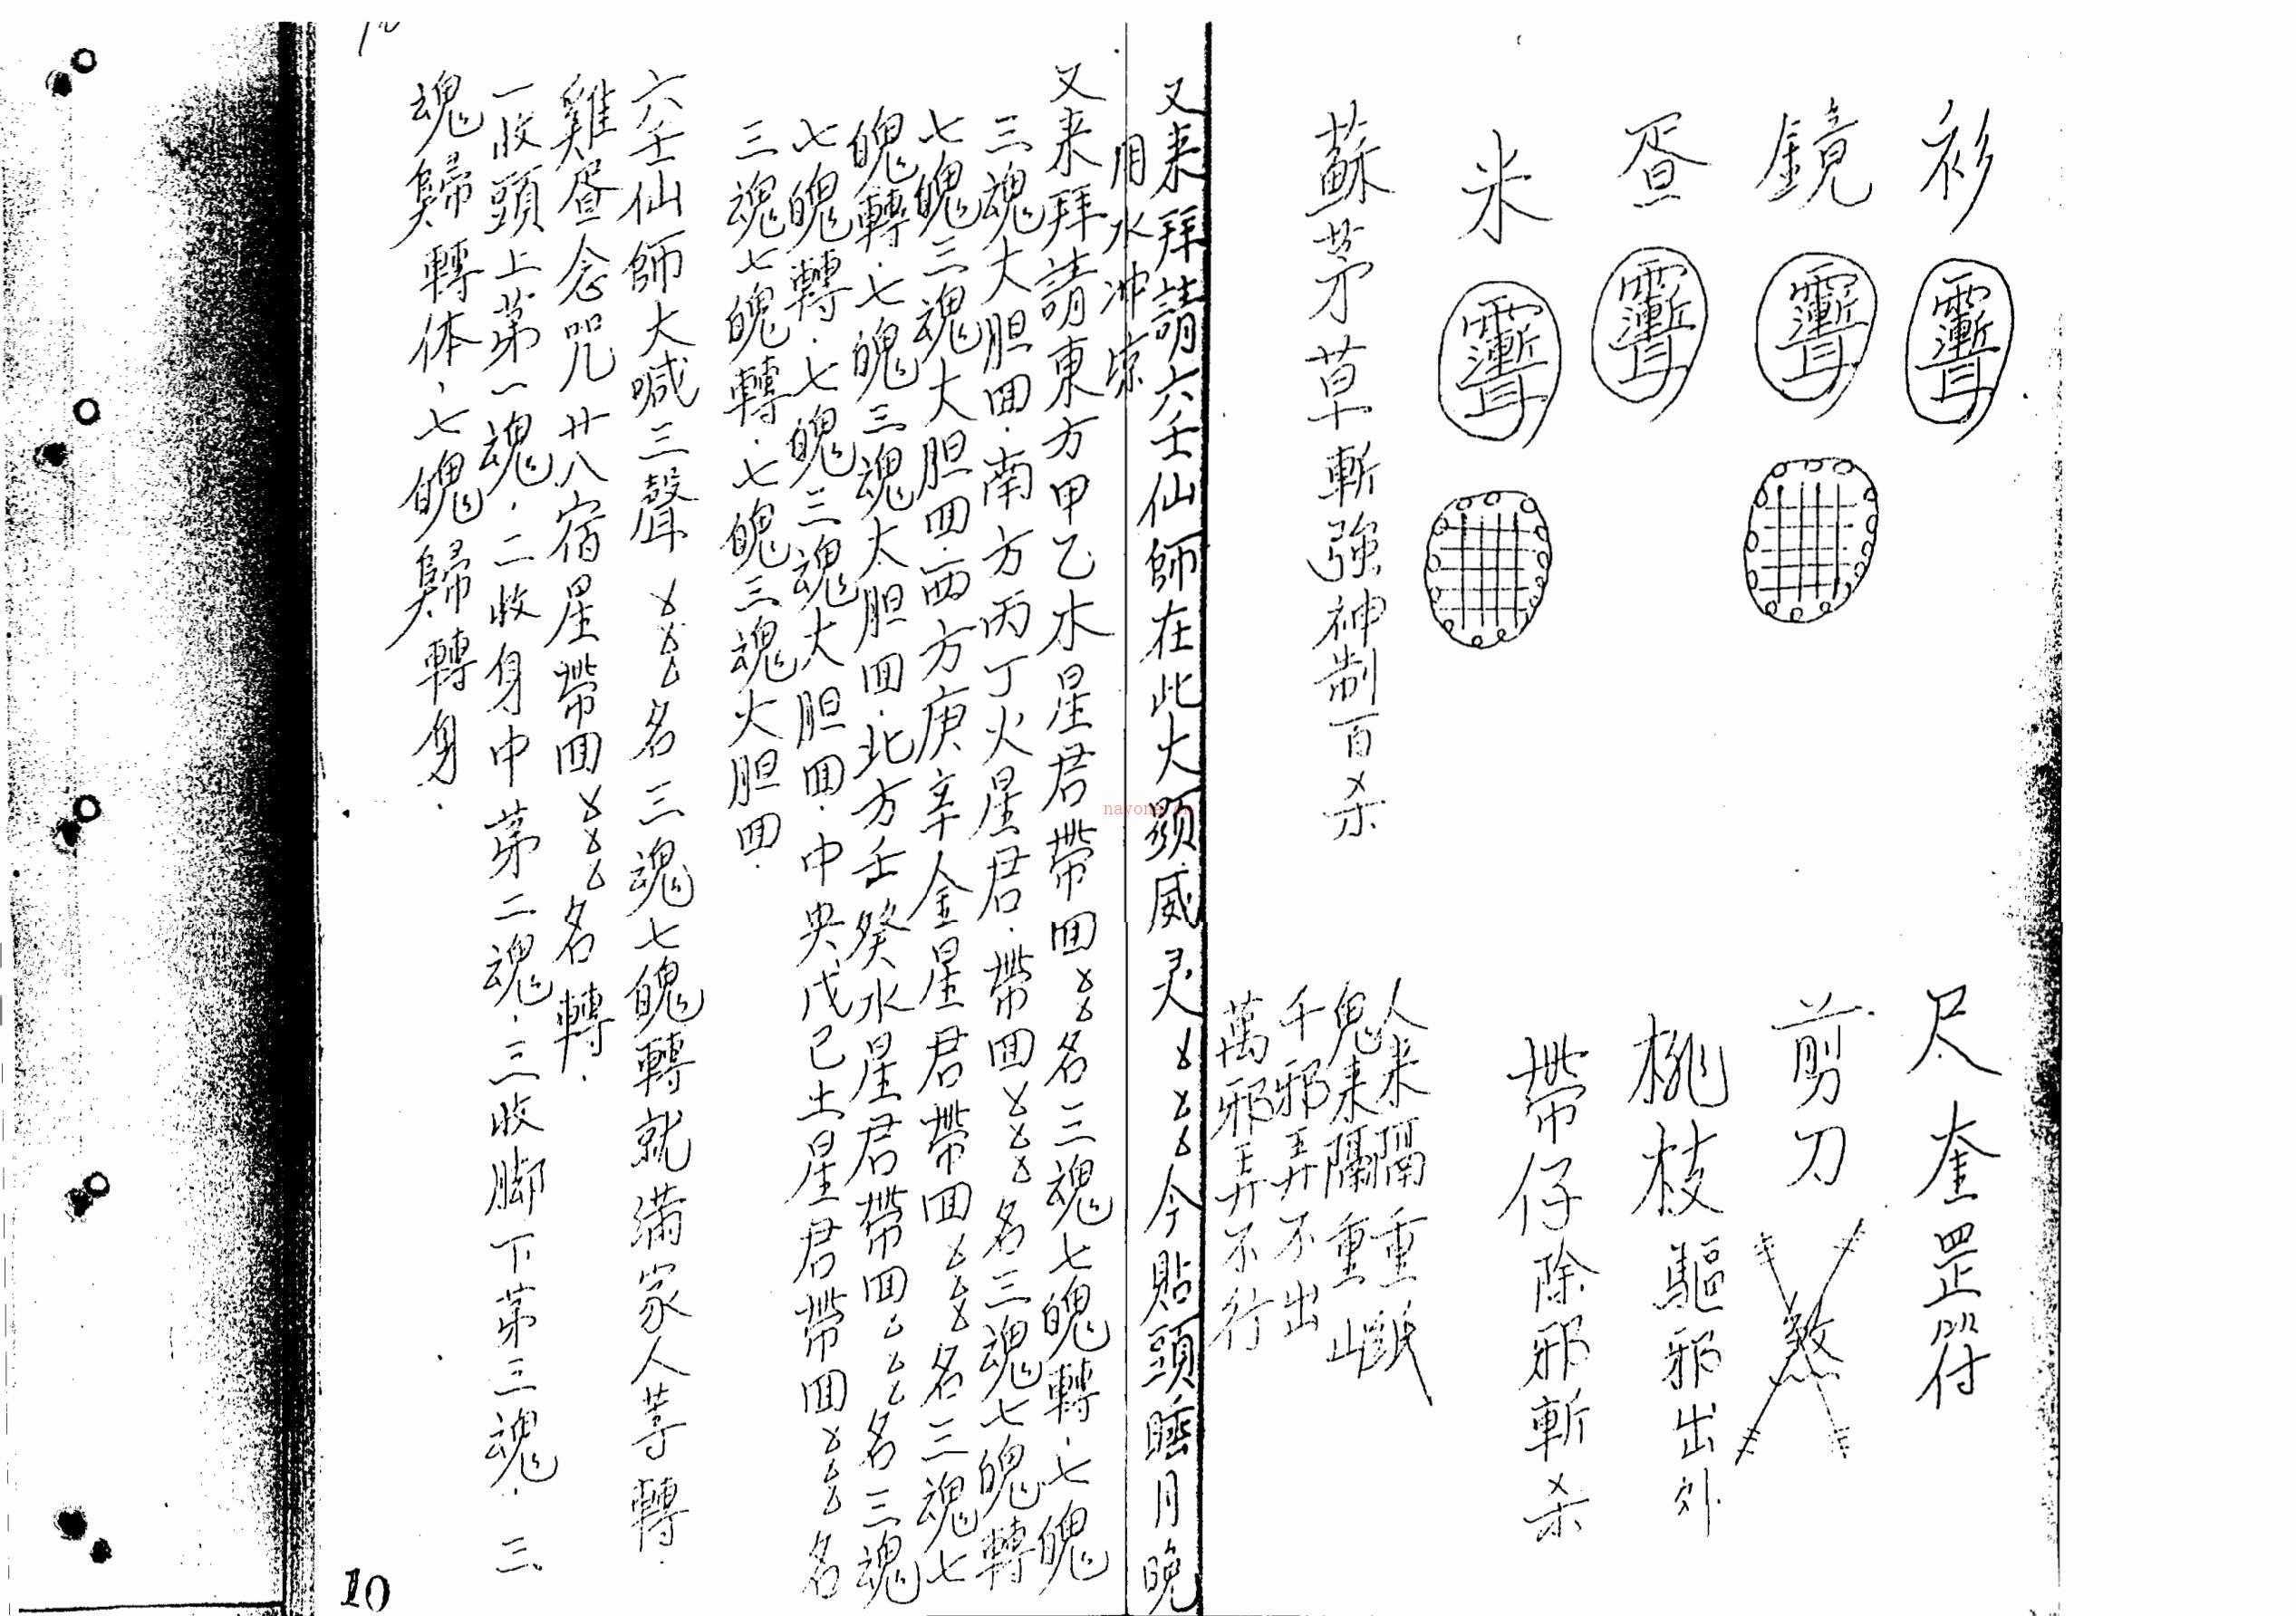 衫
鏡
昼
米
蘇茅草斬強神制百杀
尺 奎罡符
剪刀 煞
桃枝驅邪出外
帶仔除邪斬杀
人来隔重
鬼来隔重山
千邪弄不出
萬邪弄不行
又来拜請六壬仙師在此大顕威灵㐅㐅㐅今貼頭睡月晚
用水冲凉
又来拜請東方甲乙木星君帶囬㐅㐅名三魂七魄轉．七魄
三魂大胆囬．南方丙丁火星君．帶囬㐅㐅㐅名三魂七魄轉
七魄三魂大胆囬．西方庚辛金星君帶囬㐅㐅㐅名三魂七
魄轉．七魄三魂大胆囬．北方壬癸水星君帶囬㐅㐅㐅名三魂
七魄轉．七魄三魂大胆囬．中央戊己土星君帶囬㐅㐅㐅名
三魂七魄轉．七魄三魂大胆囬．
六壬仙師大喊三聲 㐅㐅㐅名三魂七魄轉就滿家人等轉．
雞昼念咒廿八宿星帶囬㐅㐅㐅名轉．
一收頭上第一魂．二收身中第二魂．三收脚下第三魂．三
魂歸轉体、七魄歸轉身．
10